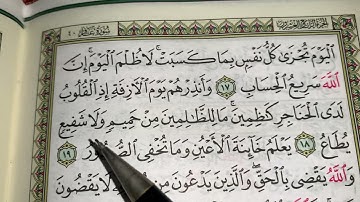 سورة غافر ٤٠
الجزء الرابع والعشرون
ٱلۡيَوۡمَ تُجۡزَىٰ كُلُّ نَفۡسِۭ بِمَا كَسَبَتۡۚ لَا ظُلۡمَ ٱلۡيَوۡمَۚ إِنَّ
ٱللَّهَ سَرِيعُ ٱلۡحِسَابِ ١٧ وَأَنذِرۡهُمۡ يَوۡمَ ٱلۡأٓزِفَةِ إِذِ ٱلۡقُلُوبُ
لَدَى ٱلۡحَنَاجِرِ كَٰظِمِينَۚ مَا لِلظَّٰلِمِينَ مِنۡ حَمِيمٖ وَلَا شَفِيعٖ
يُطَاعُ ١٨ يَعۡلَمُ خَآئِنَةَ ٱلۡأَعۡيُنِ وَمَا تُخۡفِي ٱلصُّدُورُ ١٩
وَٱللَّهُ يَقۡضِي بِٱلۡحَقِّۖ وَٱلَّذِينَ يَدۡعُونَ مِن لَا يَقۡضُونَ